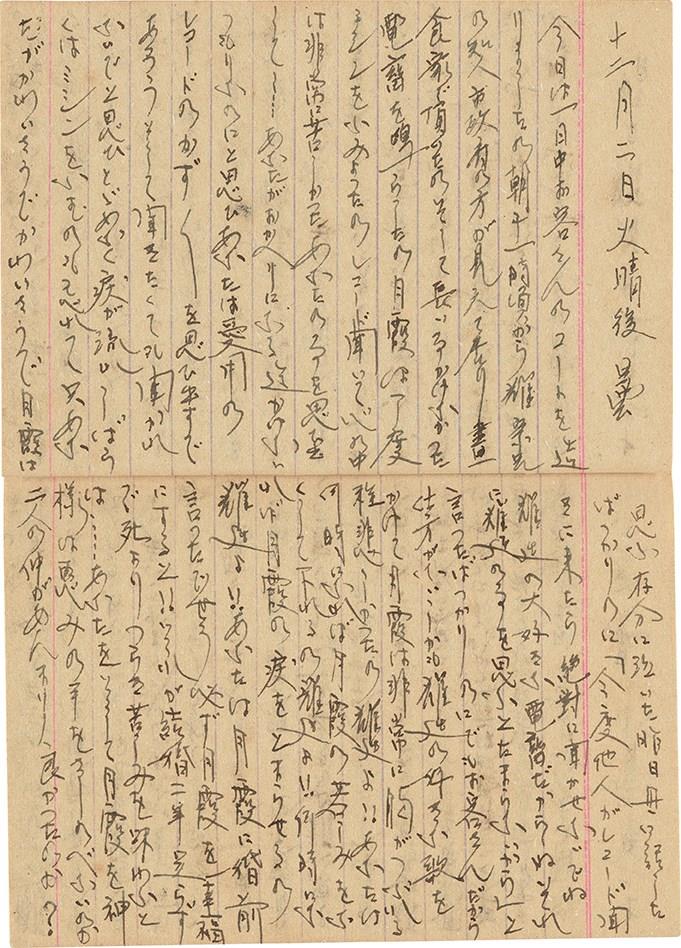 十二月二日火晴後曇
今日は一日中お客さんのコートを造
りましたの朝十一時頃から雄
の知人 の方が見えて 畫
食 頂いたのそして
電蓄を鳴らしたの月霞は丁度
ミシンをふみよつたのレコード聞いて心の中
は非常に苦しかったあなたの事を思出
して……あなたがおかへりになる迄かけない
つもりなのにと思ひあなたは愛用の
レコードのかず〱を思ひ出すで
あろうそして聞きたくても聞かれ
ないでと思ひとめどなく涙が流れしばら
くはミシンをふむのも忘れて只あな
たがかわいさうでかわいさうで月霞は
思ふ存分に泣いた昨日母に話した
ばつかりのに「今度他人がレコード聞
きに来たら絶對に聞かせないでね
雄 の大好きな電蓄だからねいそれ
に雄 の事を思ふとたまらないから」と
言つたばつかりのにでもお客さんだから
仕方がないしかも雄 の好きな歌を
かけて月霞は非常に胸がつぶれる
程悲しかつたの雄 よ!!あなたは
何時になれば月霞の苦しみをな
くして下れるの雄 よ!!何時にな
れば月霞の涙をとまらせるの
雄 よ!!あなたは月霞に婚前
言つたでせう必ず月霞を幸福
にすると!!いくらが結婚二年足らず
で死よりつらき苦しみを味わふと
は……あなたをいとして月霞を神
様は惠みの手をさしのべないのか
二人の仲があんまり良かつたのか?